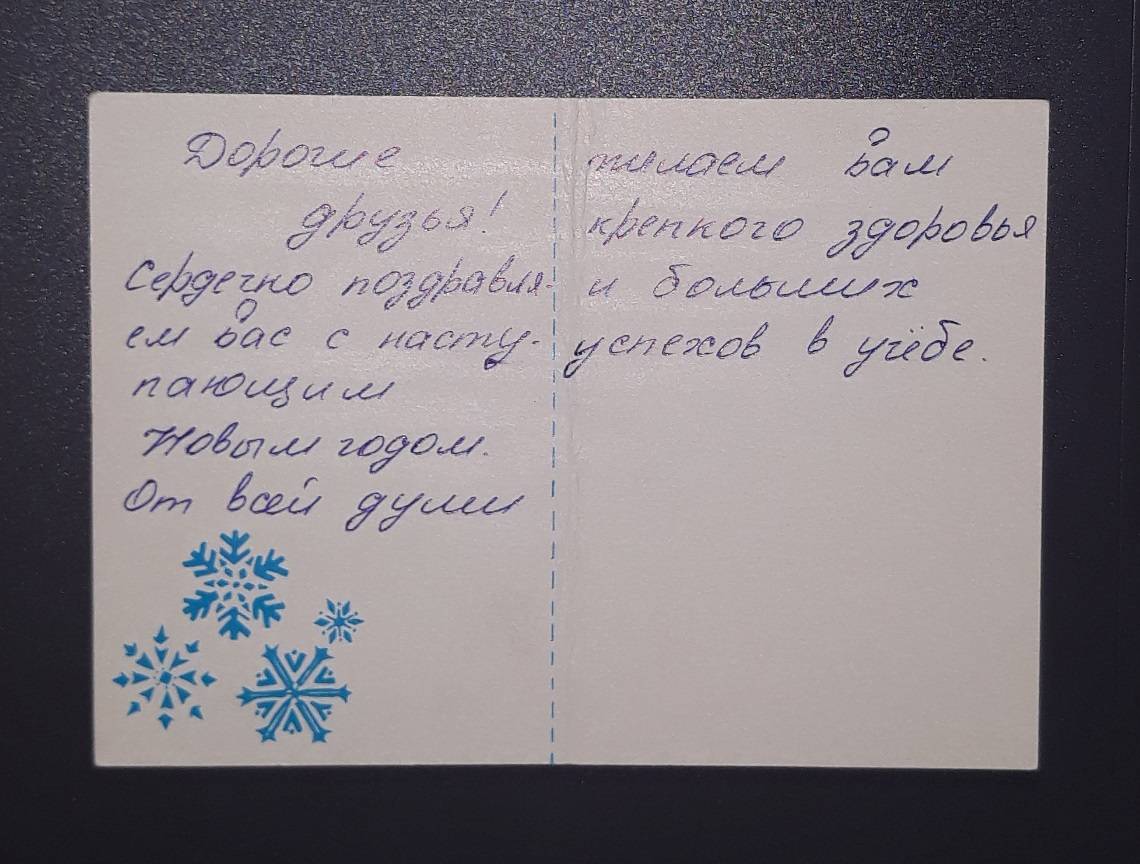 Дорогие
друзья!
Сердечно поздравля-
ем Вас с насту-
пающим
Новым годом.
От всей души
желаем Вам
крепкого здоровья
и больших
успехов в учёбе.